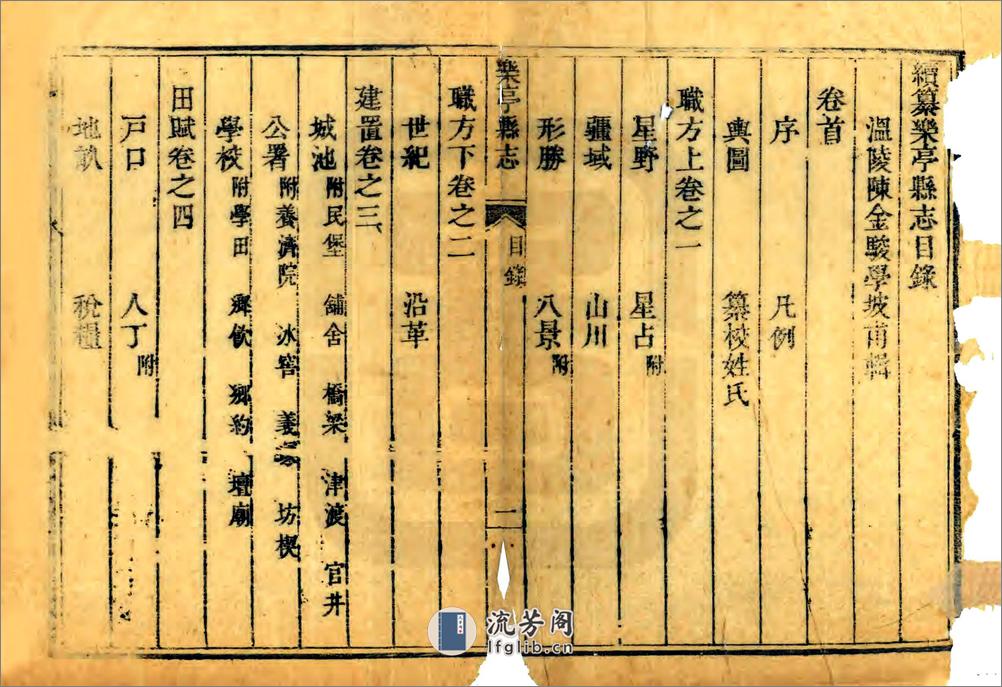 續纂樂亭縣志目錄
溫陵陳金駿學坡甫輯
卷首
序 凡例
輿圖 纂校姓氏
職方上卷之一
星野 星占附
疆域 山川
形勝 八景附
樂亭縣志 目錄 一
職方下卷之二
世紀 沿革
建置卷之三
城池附民堡 舖舍 橋梁 津渡 官井
公署附養濟院 冰窖 義 坊楔
學校附學田 鄉飲 鄉約 壇廟
田賦卷之四
戶口 人丁附
地畝 稅糧
流芳阁
lfglib.cn